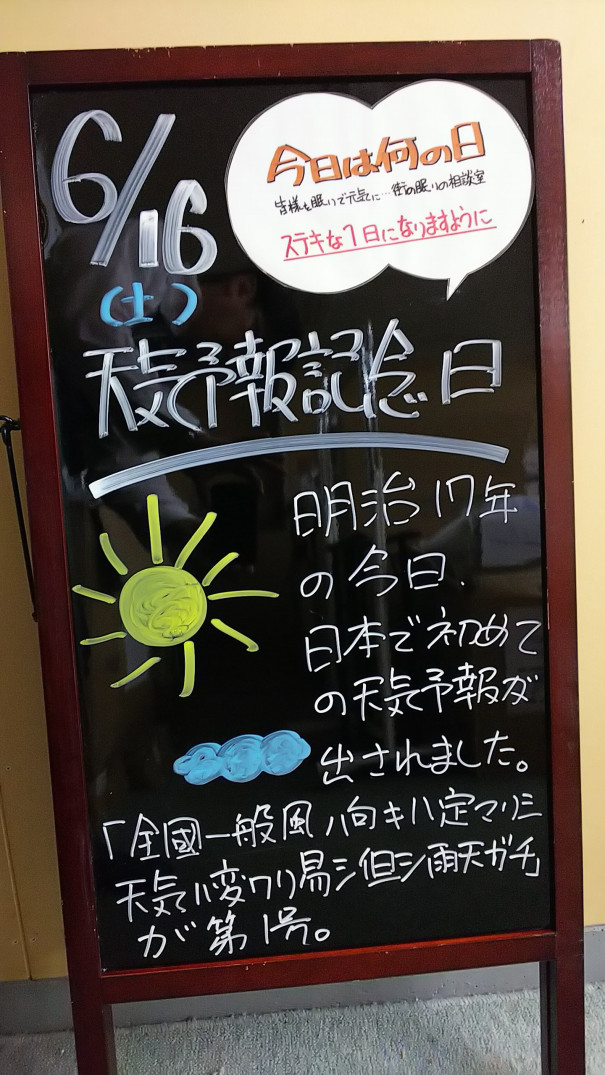 6/16
(土)
今日は何の日
皆様も眠りで元気に…街の眠りの相談室
ステキな1日になりますように
天気予報記念日
明治17年
の今日、
日本で初めて
の天気予報が
出されました。
「全國一般風ノ向キハ定マリ三
天気ハ変ワリ易シ但シ雨天ガチ」
が第1号。